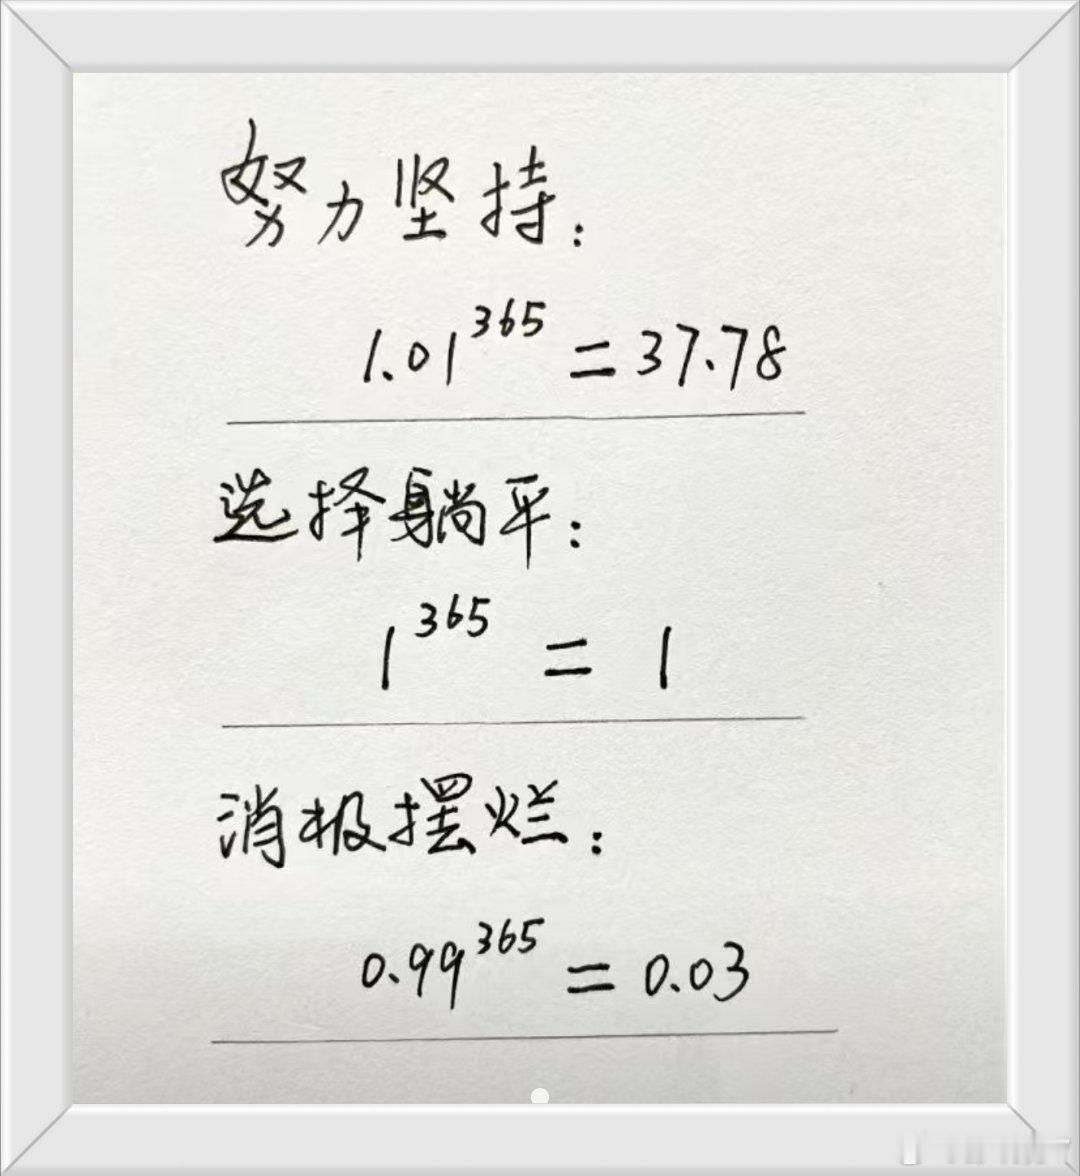 努力坚持：
1.01^365 = 37.78
选择躺平：
1^365 = 1
消极摆烂：
0.99^365 = 0.03